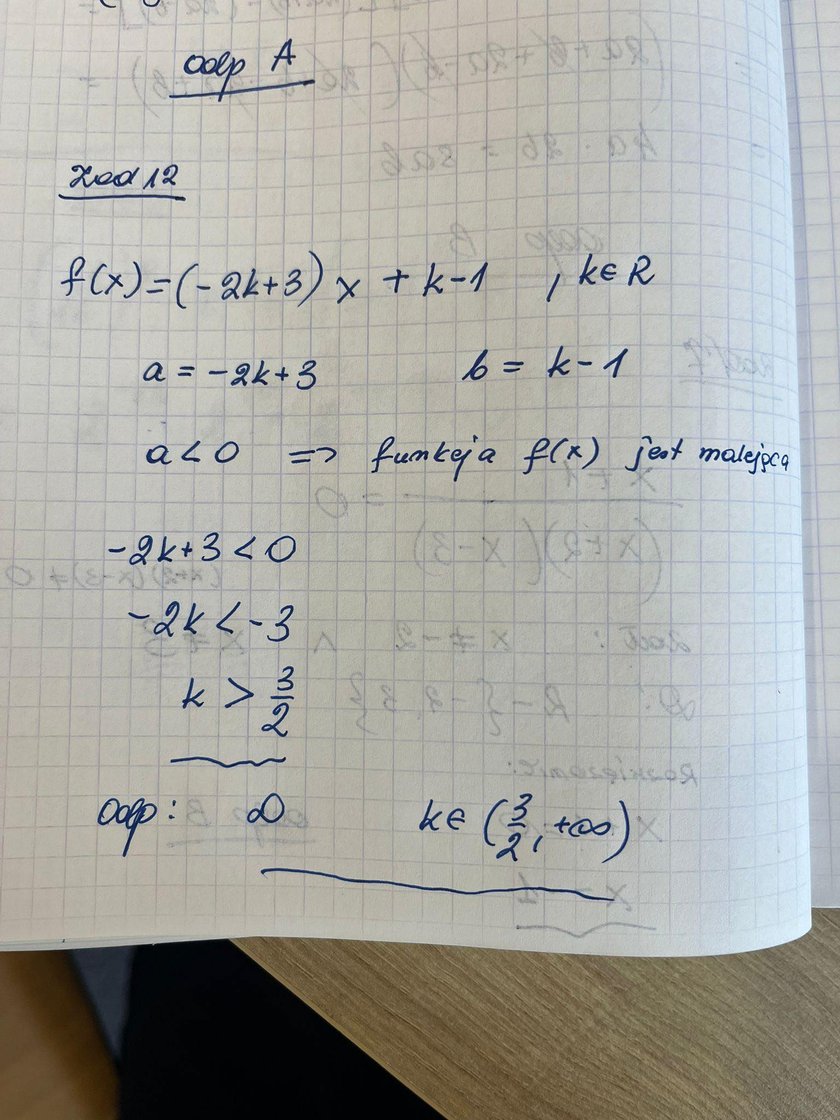 odp A
Zad 12
f(x) = (-2k+3) x + k-1 , k∈R
a = -2k+3 b = k-1
a < 0 => funkcja f(x) jest malejąca
-2k+3 < 0
-2k < -3
k > 3/2
odp: D k∈ (3/2; +∞)